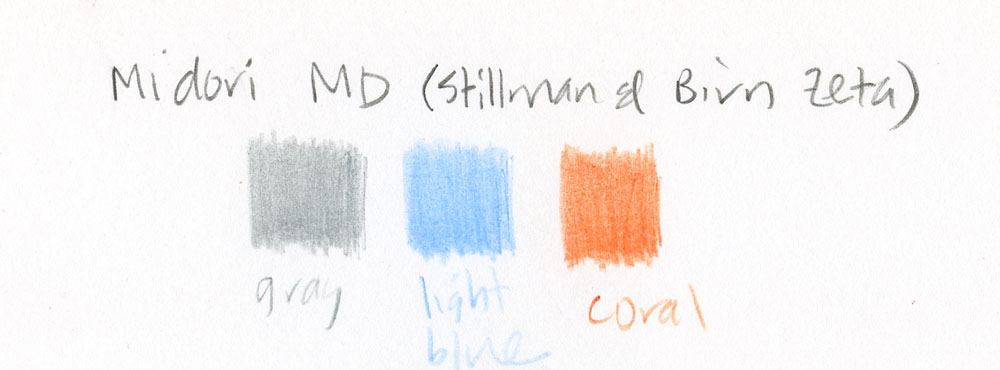 Midori MD (Stillman & Birn Zeta)
gray
light
blue
coral